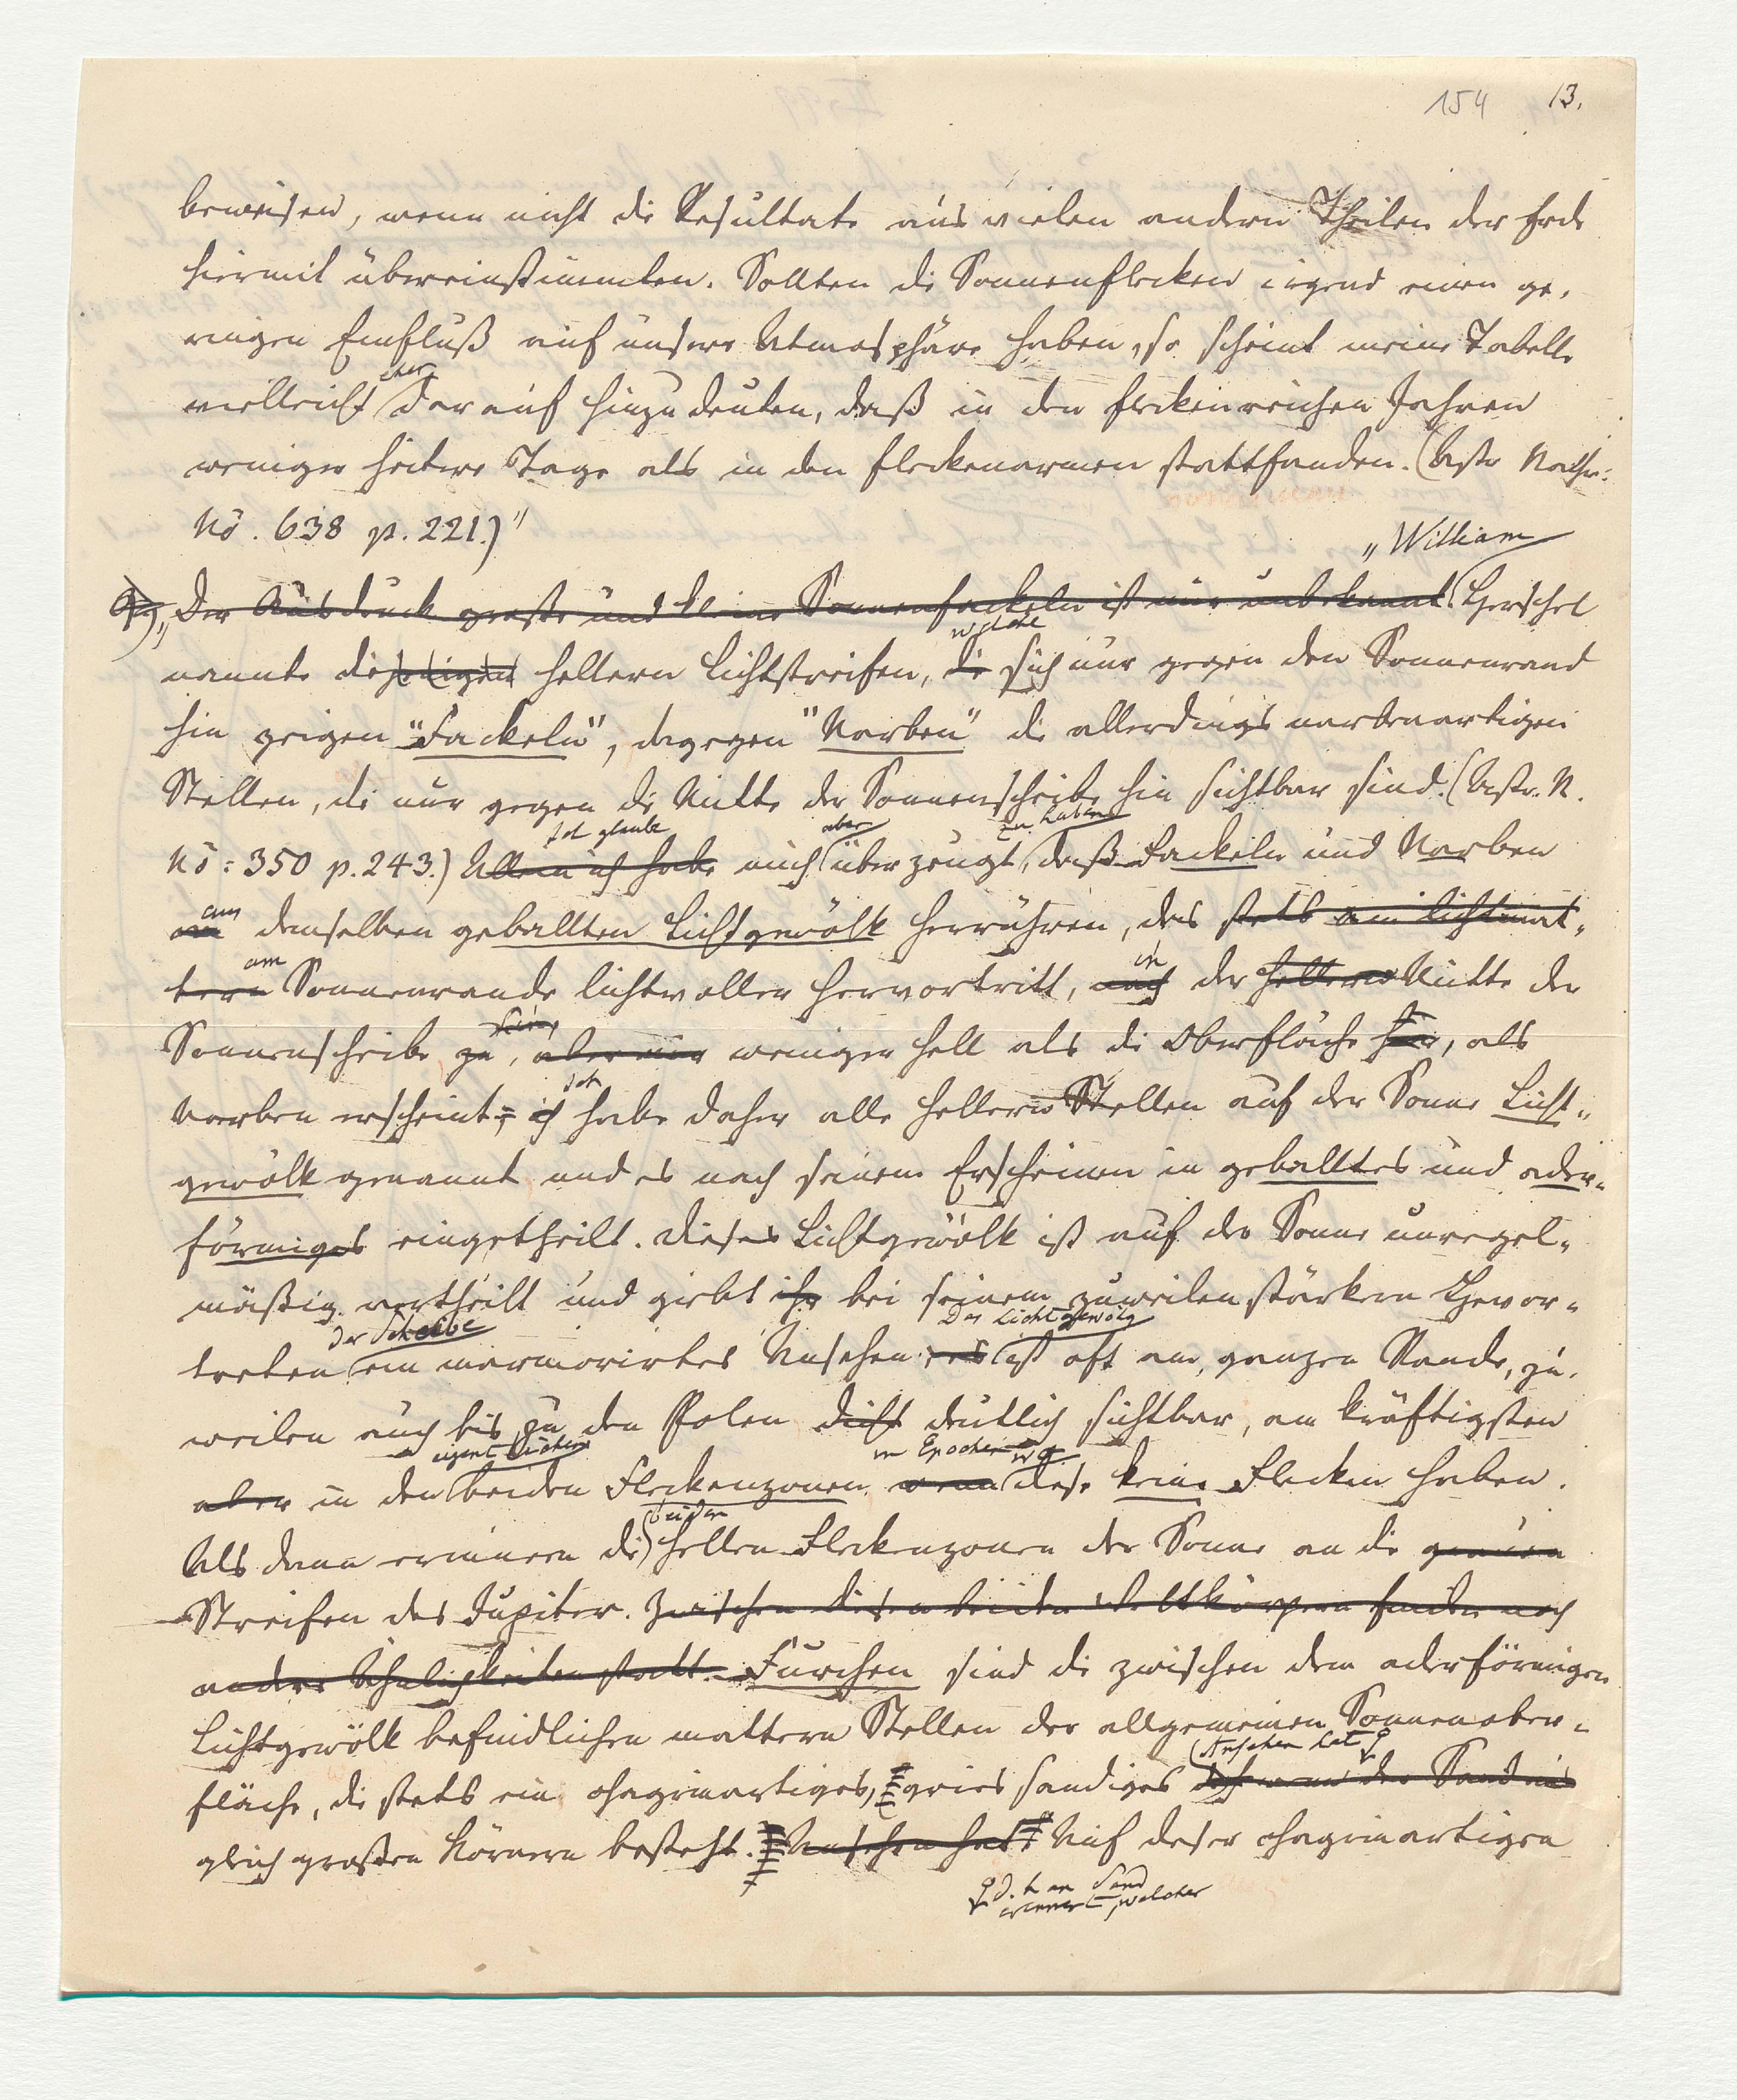 154 13.
beweisen, wenn nicht die Resultate aus vielen andern Theilen der Erde
hiermit übereinstimmten. Sollten die Sonnenflecken irgend einen ge-
ringen Einfluß auf unsere Atmosphäre haben, so scheint meine Tabelle
eher
vielleicht darauf hinzudeuten, daß in den fleckenreichen Jahren
weniger heitere Tage als in den fleckenarmen stattfanden. (Astr Nachr:
No. 638 p. 221.)"
„William
„Der Ausdruck große und kleine Sonnenfackeln ist mir unbekannt. Herschel
welche
nannte diejenigen hellern Lichtstreifen, die sich nur gegen den Sonnenrand
hin zeigen "Fackeln", dagegen "Narben" die allerdings narbenartigen
Stellen, die nur gegen die Mitte der Sonnenscheibe hin sichtbar sind. (Astr. N.
Ich glaube aber zu haben
No: 350 p. 243.) Allein ich habe mich überzeugt, daß Fackeln und Narben
demselben geballten Lichtgewölk herrühren, das stets am lichtmat-
am in
tern Sonnenrande lichtvoller hervortritt, nach der hellern Mitte der
Sonnenscheibe zu, aber nur weniger hell als die Oberfläche hier, als
Ich
Narben erscheint; ich habe daher alle hellern Stellen auf der Sonne Licht-
gewölk genannt und es nach seinem Erscheinen in geballtes und ader-
förmiges eingetheilt. Dieses Lichtgewölk ist auf der Sonne unregel-
mäßig vertheilt und giebt ihr bei seinem zuweilen stärkern Hervor-
der Scheibe Das Lichtgewölk
treten ein marmorirtes Ansehen; es ist oft am ganzen Rande, zu-
weilen auch bis zu den Polen dicht deutlich sichtbar, am kräftigsten
eigentlichen in Epochen wo
aber in den beiden Fleckenzonen, wenn diese keine Flecken haben.
beiden
Als dann erinnern die hellen Fleckenzonen der Sonne an die grauen
Streifen des Jupiter. Zwischen diesen beiden Weltkörpern finden noch
andere Ähnlichkeiten statt. Furchen sind die zwischen dem aderförmigen
Lichtgewölk befindlichen mattern Stellen der allgemeinen Sonnenober-
Ansehen hat
fläche, die stets ein chagrinartiges, griessandiges wenn der Sand aus
gleich großen Körnern besteht. Ansehen hat. Auf dieser chagrinartigen
d. h an Sand
erinnert, welcher